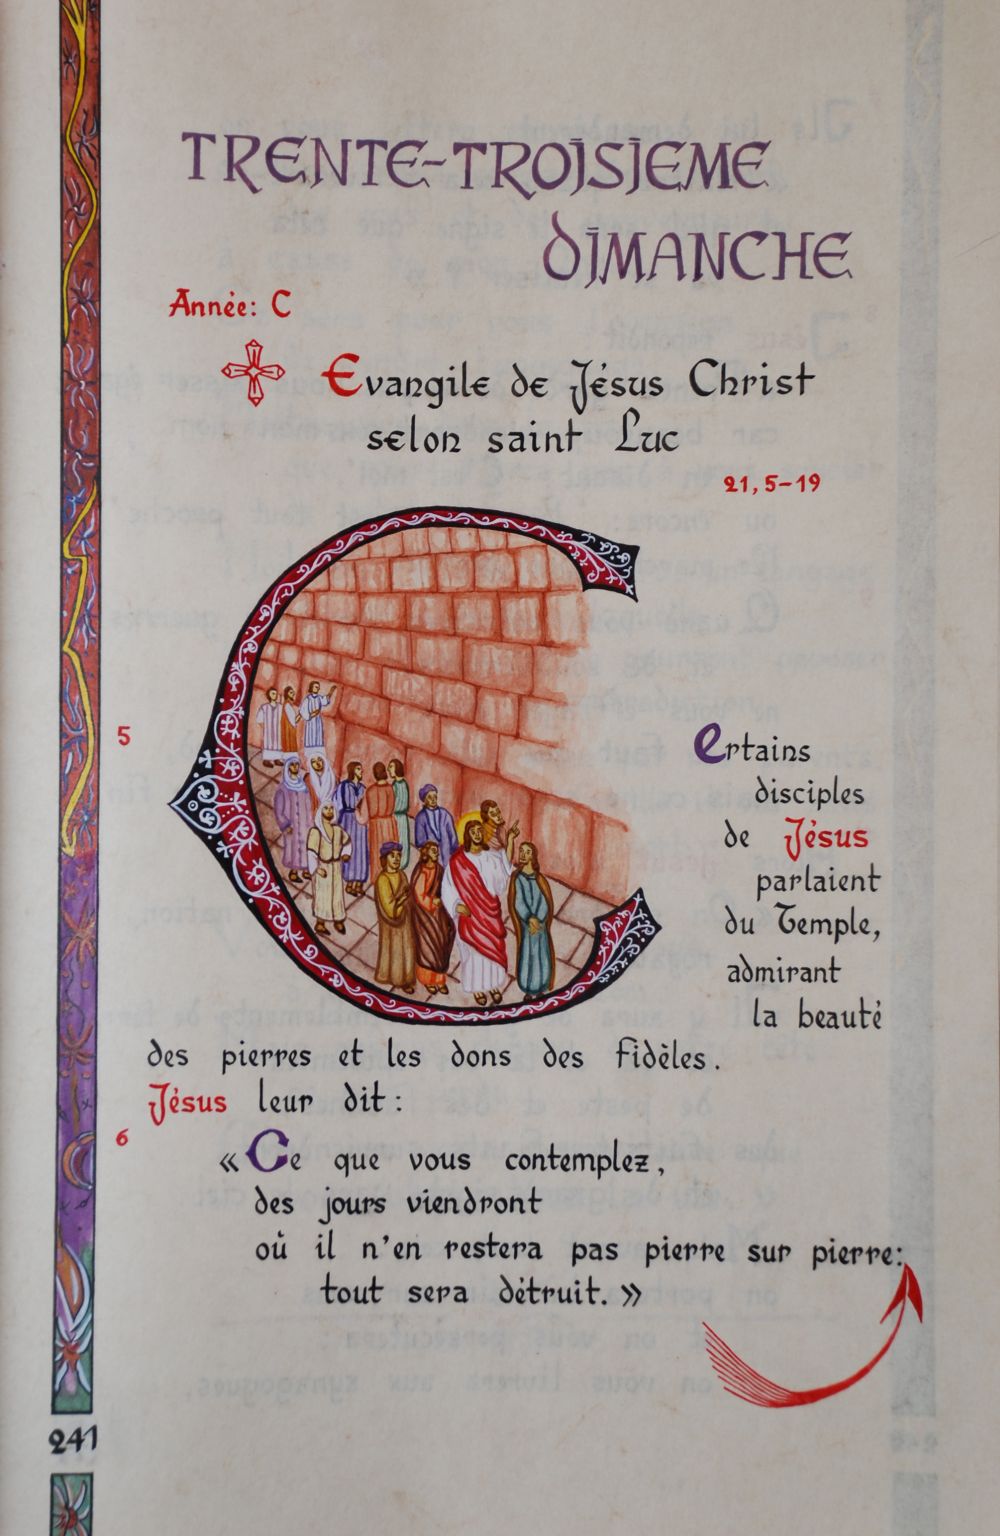 TRENTE-TROISIEME
DIMANCHE
Année: C
Evangile de Jésus Christ
selon saint Luc
21, 5-19
5
Certains
disciples
de Jésus
parlaient
du Temple,
admirant
la beauté
des pierres et les dons des fidèles.
Jésus leur dit :
6
« Ce que vous contemplez,
des jours viendront
où il n'en restera pas pierre sur pierre:
tout sera détruit. »
241